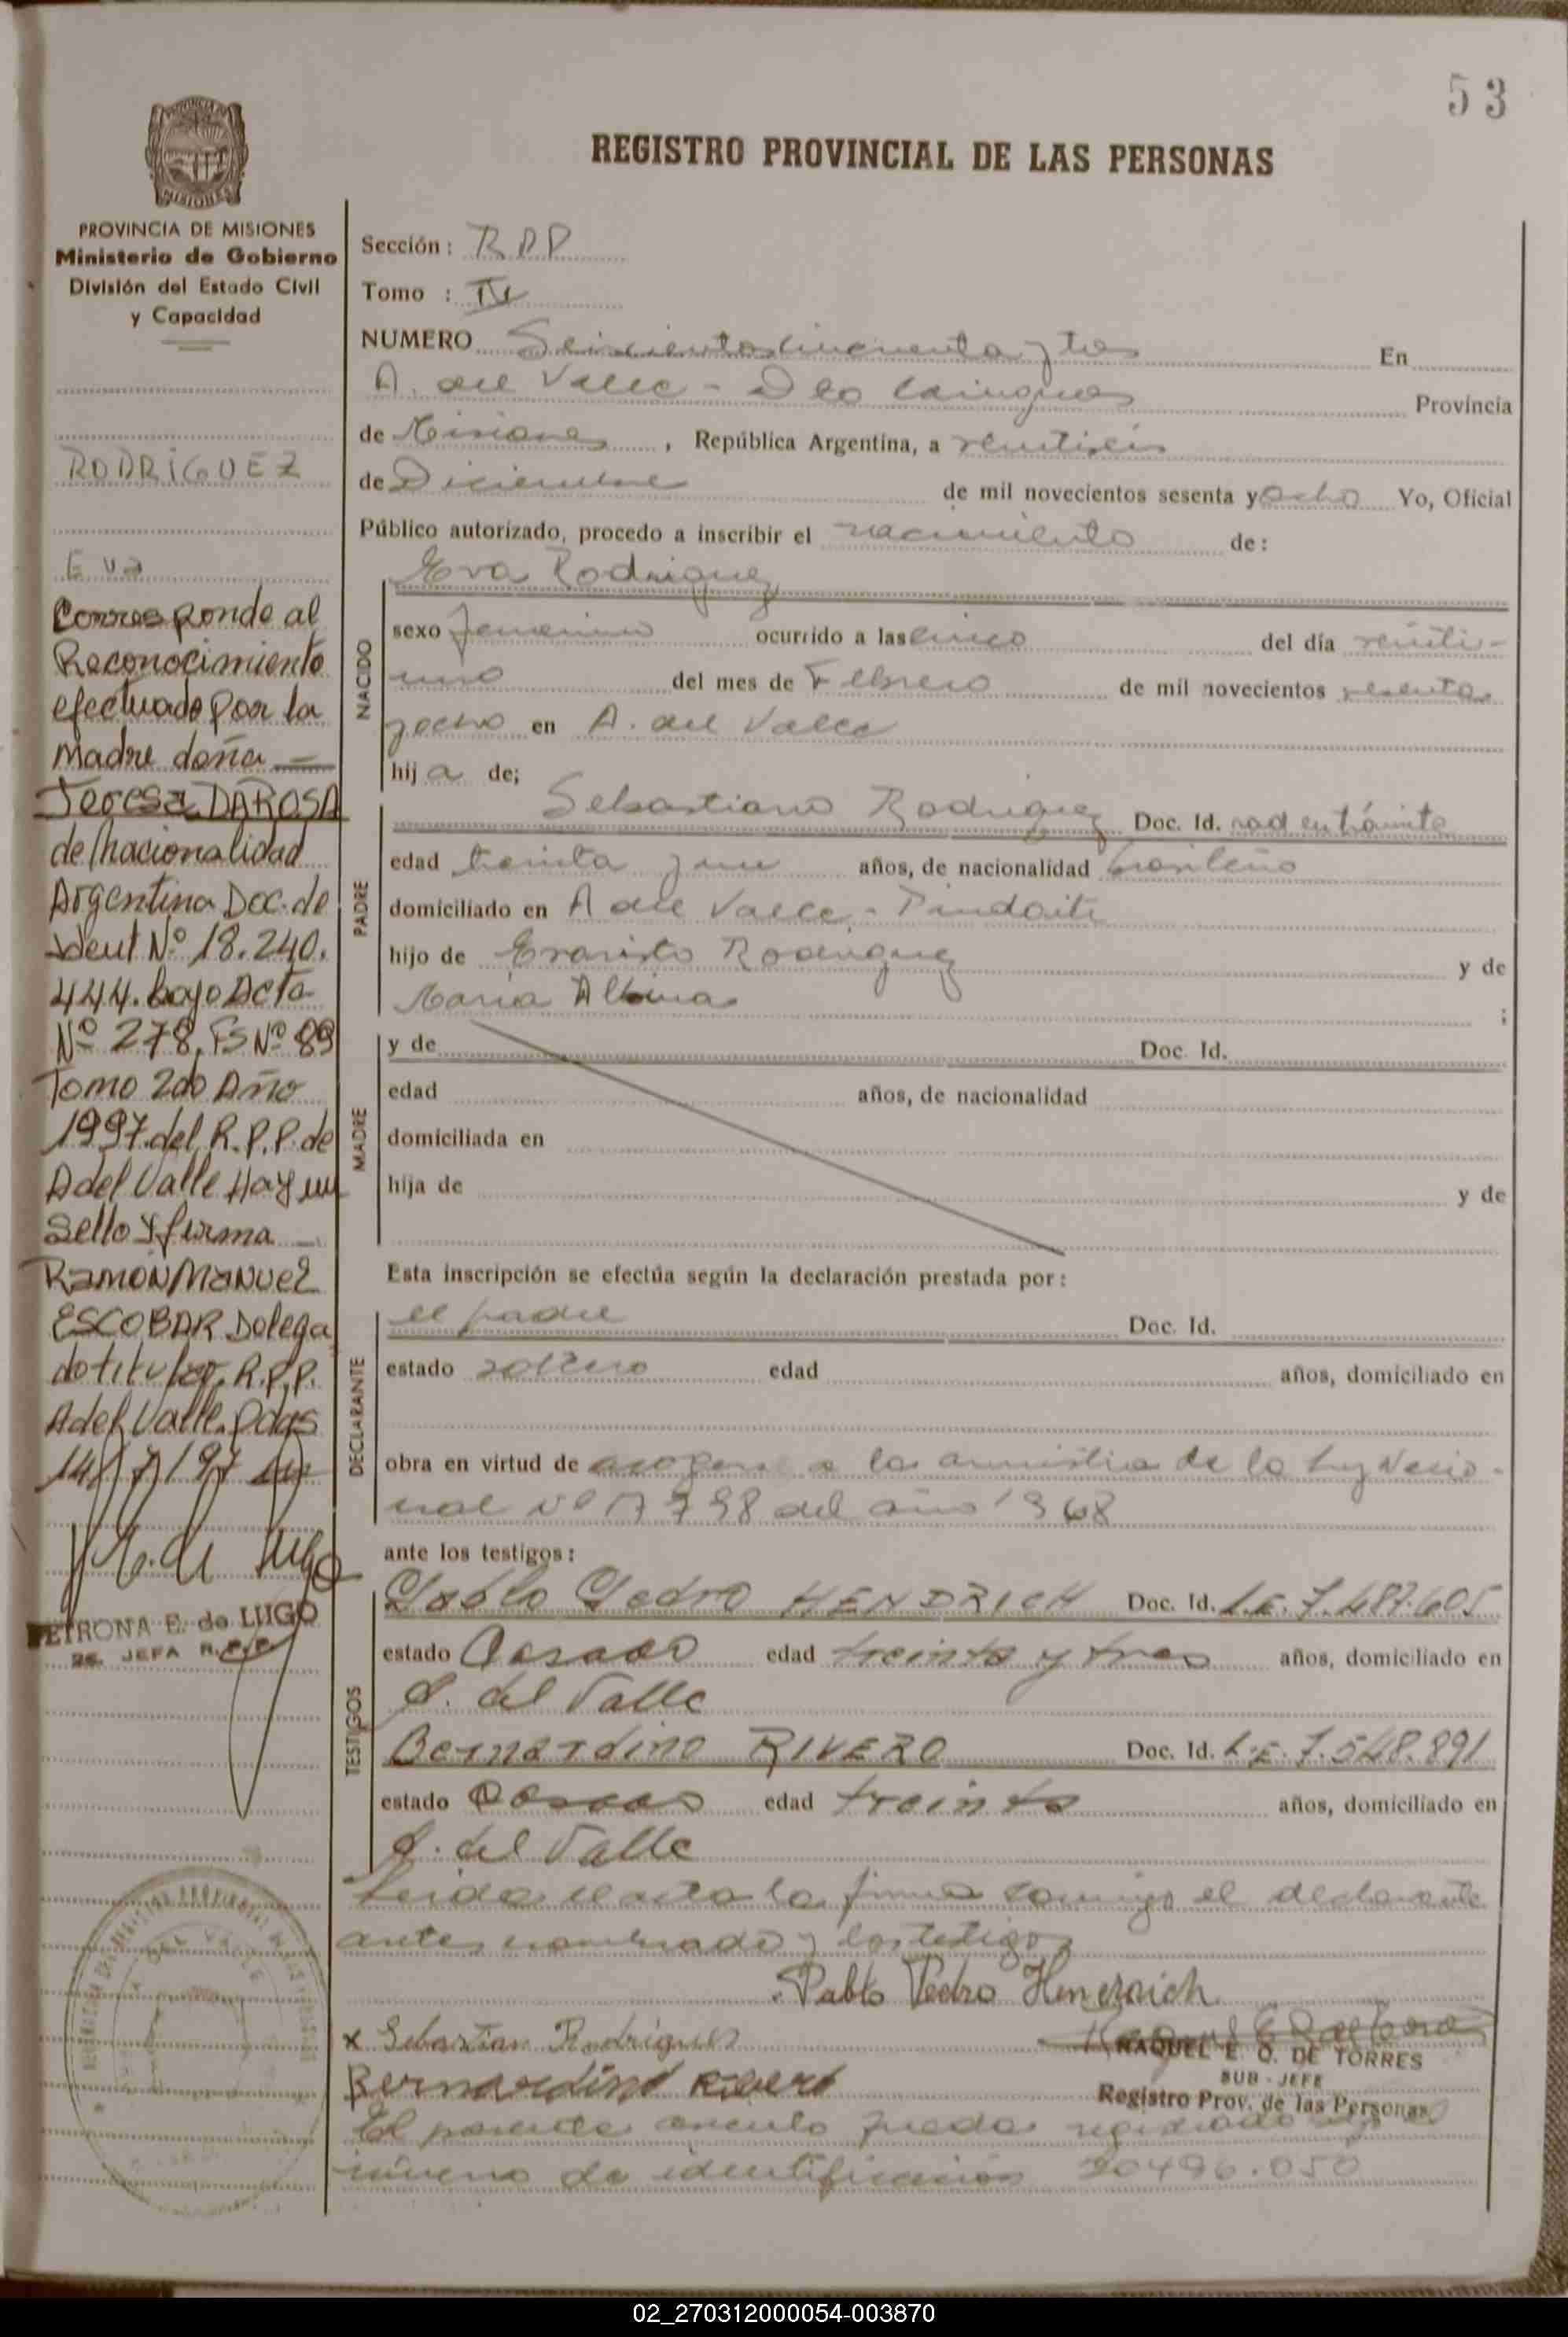 53
REGISTRO PROVINCIAL DE LAS PERSONAS
PROVINCIA DE MISIONES
Ministerio de Gobierno
División del Estado Civil
y Capacidad
RODRIGUEZ
Eva
Corresponde al
Reconocimiento
efectuado por la
Madre doña
Teresa DAROSA
de Nacionalidad
Argentina Doc. de
Ident Nº 18.240.
444. bajo Acta
Nº 278, Fs Nº 89
Tomo 2do Año
1997 del R.P.P. de
A del Valle Hay un
Sello y firma
RAMON MANUEL
ESCOBAR Delega
do titular, R.P.P.
A del Valle. Pdas
14/7/97
PETRONA E. de LUGO
JEFA R.P.P.
Sección : RPP
Tomo : IV
NUMERO Seiscientos cincuenta y tres En
A. del Valle - Dto Cainguas Provincia
de Misiones , República Argentina, a veintiseis
de Diciembre de mil novecientos sesenta y ocho Yo, Oficial
Público autorizado, procedo a inscribir el nacimiento de:
NACIDO
Eva Rodriguez
sexo femenino ocurrido a las cinco del día veinti-
uno del mes de Febrero de mil novecientos sesenta
y ocho en A. del Valle
hij a de;
PADRE
Sebastiano Rodriguez Doc. Id. rad en trámite
edad treinta y un años, de nacionalidad brasileño
domiciliado en A del Valle - Pindaiti
hijo de Evaristo Rodriguez y de
Maria Albina ;
MADRE
y de Doc. Id.
edad años, de nacionalidad
domiciliada en
hija de y de
Esta inscripción se efectúa según la declaración prestada por :
DECLARANTE
el padre Doc. Id.
estado soltero edad años, domiciliado en
obra en virtud de acogerse a la amnistia de la Ley Nacio-
nal Nº 17798 del año 1968
ante los testigos :
TESTIGOS
Pablo Pedro HENDRICH Doc. Id. L.E. 7.487.605
estado Casado edad treinta y tres años, domiciliado en
A. del Valle
Bernardino RIVERO Doc. Id. L.E. 7.548.891
estado Casado edad treinta años, domiciliado en
A. del Valle
Leida el acta la firma conmigo el declarante
antes nombrado y los testigos
Pablo Pedro Henerich
x Sebastian Rodrigues
RAQUEL E. O. DE TORRES
SUB - JEFE
Bernardino Rivero
Registro Prov. de las Personas
El presente asiento queda registrado
número de identificación 20496.050
02_270312000054-003870